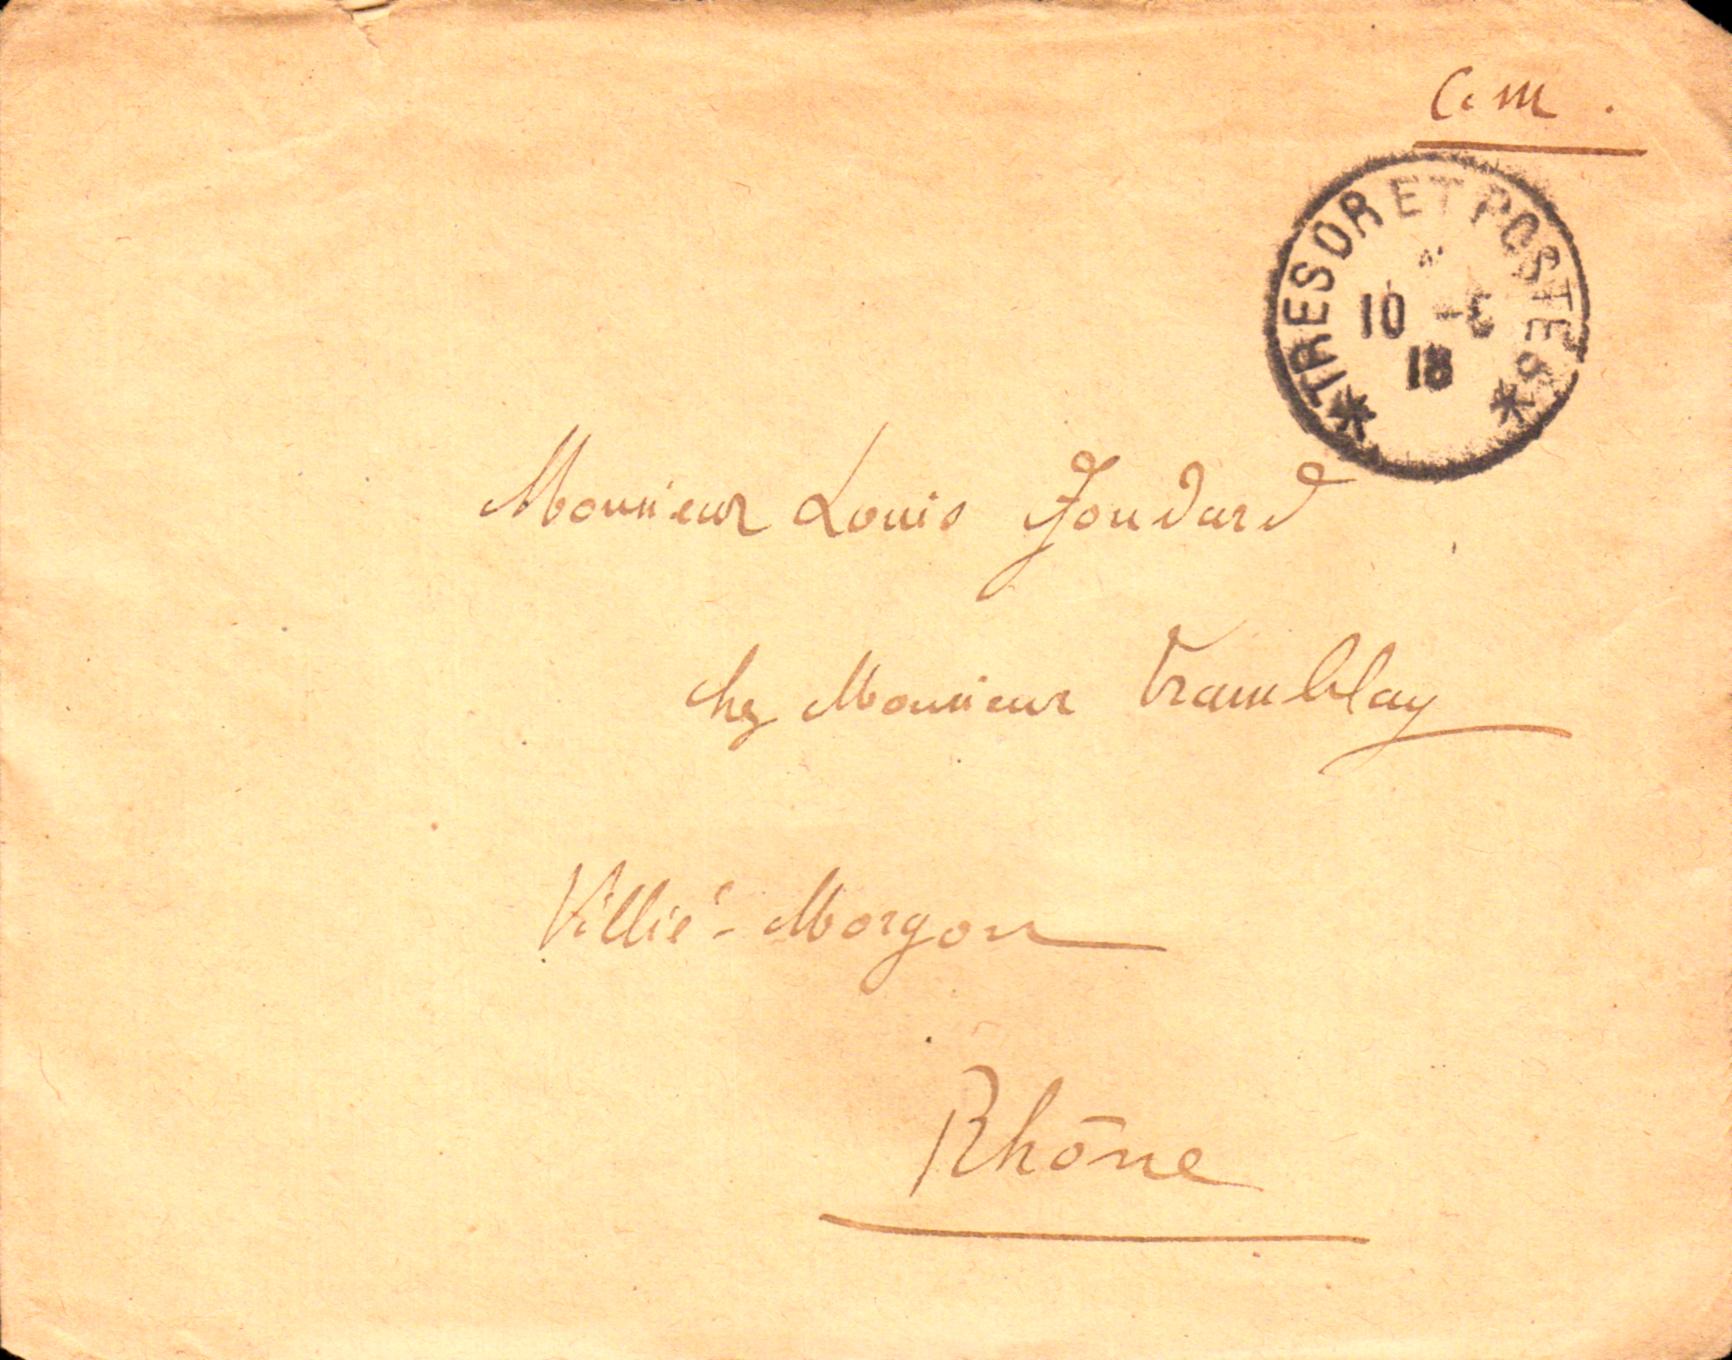 C. M.
* TRESOR ET POSTES *
10 -5
18
Monsieur Louis Joudard
chez Monsieur Tramblay
Villié-Morgon
Rhône